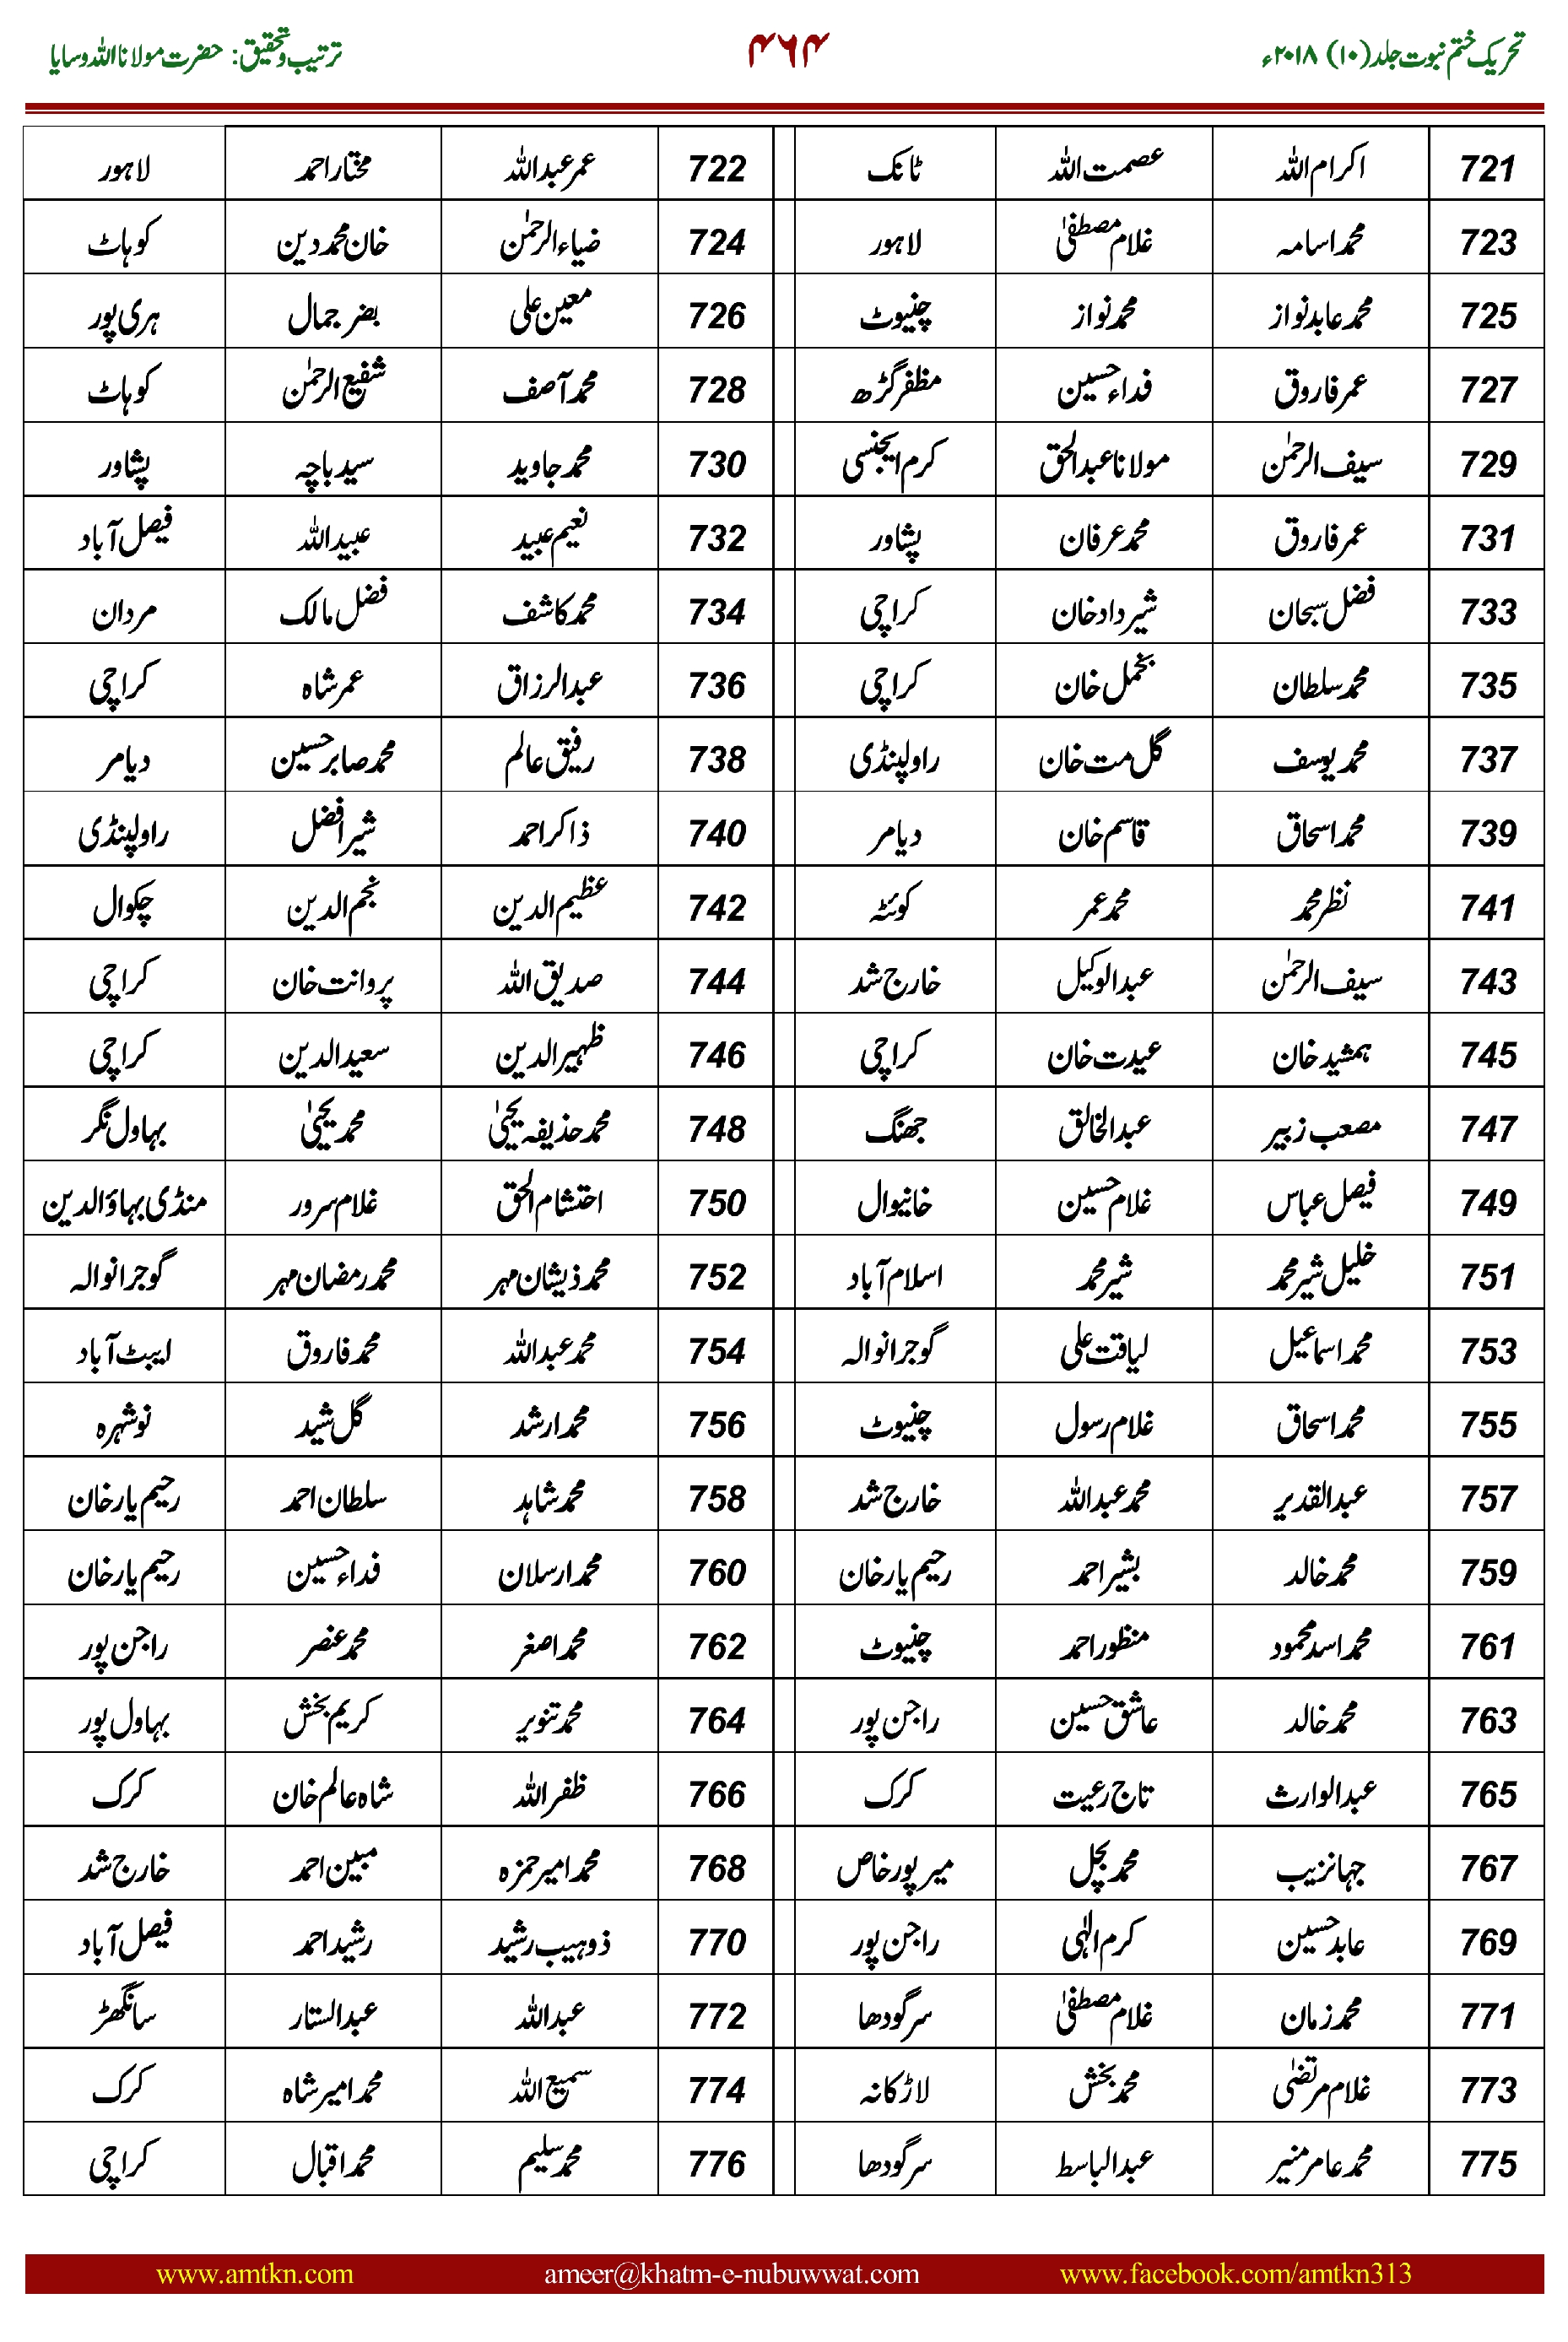 تحریک ختم نبوت جلد(۱۰) ۲۰۱۸ء ۴۶۴ ترتیب و تحقیق: حضرت مولانا اللہ وسایا
721 اکرام اللہ عصمت اللہ ٹانک 722 عمر عبداللہ مختار احمد لاہور
723 محمد اسامہ غلام مصطفیٰ لاہور 724 ضیاء الرحمٰن خان محمد دین کوہاٹ
725 محمد عابد نواز محمد نواز چنیوٹ 726 معین علی بضر جمال ہری پور
727 عمر فاروق فداء حسین مظفر گڑھ 728 محمد آصف شفیع الرحمٰن کوہاٹ
729 سیف الرحمٰن مولانا عبدالحق کرم ایجنسی 730 محمد جاوید سید باچہ پشاور
731 عمر فاروق محمد عرفان پشاور 732 نعیم عبید عبید اللہ فیصل آباد
733 فضل سبحان شیر داد خان کراچی 734 محمد کاشف فضل مالک مردان
735 محمد سلطان بخمل خان کراچی 736 عبدالرزاق عمر شاہ کراچی
737 محمد یوسف گل مت خان راولپنڈی 738 رفیق عالم محمد صابر حسین دیامر
739 محمد اسحاق قاسم خان دیامر 740 ذاکر احمد شیر افضل راولپنڈی
741 نظر محمد محمد عمر کوئٹہ 742 عظیم الدین نجم الدین چکوال
743 سیف الرحمٰن عبدالوکیل خارج شد 744 صدیق اللہ پروانت خان کراچی
745 ہمشید خان عیدت خان کراچی 746 ظہیر الدین سعید الدین کراچی
747 مصعب زبیر عبدالخالق جھنگ 748 محمد حذیفہ یحییٰ محمد یحییٰ بہاول نگر
749 فیصل عباس غلام حسین خانیوال 750 احتشام الحق غلام سرور منڈی بہاؤالدین
751 خلیل شیر محمد شیر محمد اسلام آباد 752 محمد ذیشان مہر محمد رمضان مہر گوجرانوالہ
753 محمد اسماعیل لیاقت علی گوجرانوالہ 754 محمد عبداللہ محمد فاروق ایبٹ آباد
755 محمد اسحاق غلام رسول چنیوٹ 756 محمد ارشد گل شید نوشہرہ
757 عبدالقدیر محمد عبداللہ خارج شد 758 محمد شاہد سلطان احمد رحیم یار خان
759 محمد خالد بشیر احمد رحیم یار خان 760 محمد ارسلان فداء حسین رحیم یار خان
761 محمد اسد محمود منظور احمد چنیوٹ 762 محمد اصغر محمد عنصر راجن پور
763 محمد خالد عاشق حسین راجن پور 764 محمد تنویر کریم بخش بہاول پور
765 عبدالوارث تاج رعیت کرک 766 ظفر اللہ شاہ عالم خان کرک
767 جہانزیب محمد بچل میر پور خاص 768 محمد امیر حمزہ مبین احمد خارج شد
769 عابد حسین کرم الٰہی راجن پور 770 ذوہیب رشید رشید احمد فیصل آباد
771 محمد زمان غلام مصطفیٰ سرگودھا 772 عبداللہ عبدالستار سانگھڑ
773 غلام مرتضیٰ محمد بخش لاڑکانہ 774 سمیع اللہ محمد امیر شاہ کرک
775 محمد عامر منیر عبدالباسط سرگودھا 776 محمد سلیم محمد اقبال کراچی
www.amtkn.com ameer@khatm-e-nubuwwat.com www.facebook.com/amtkn313